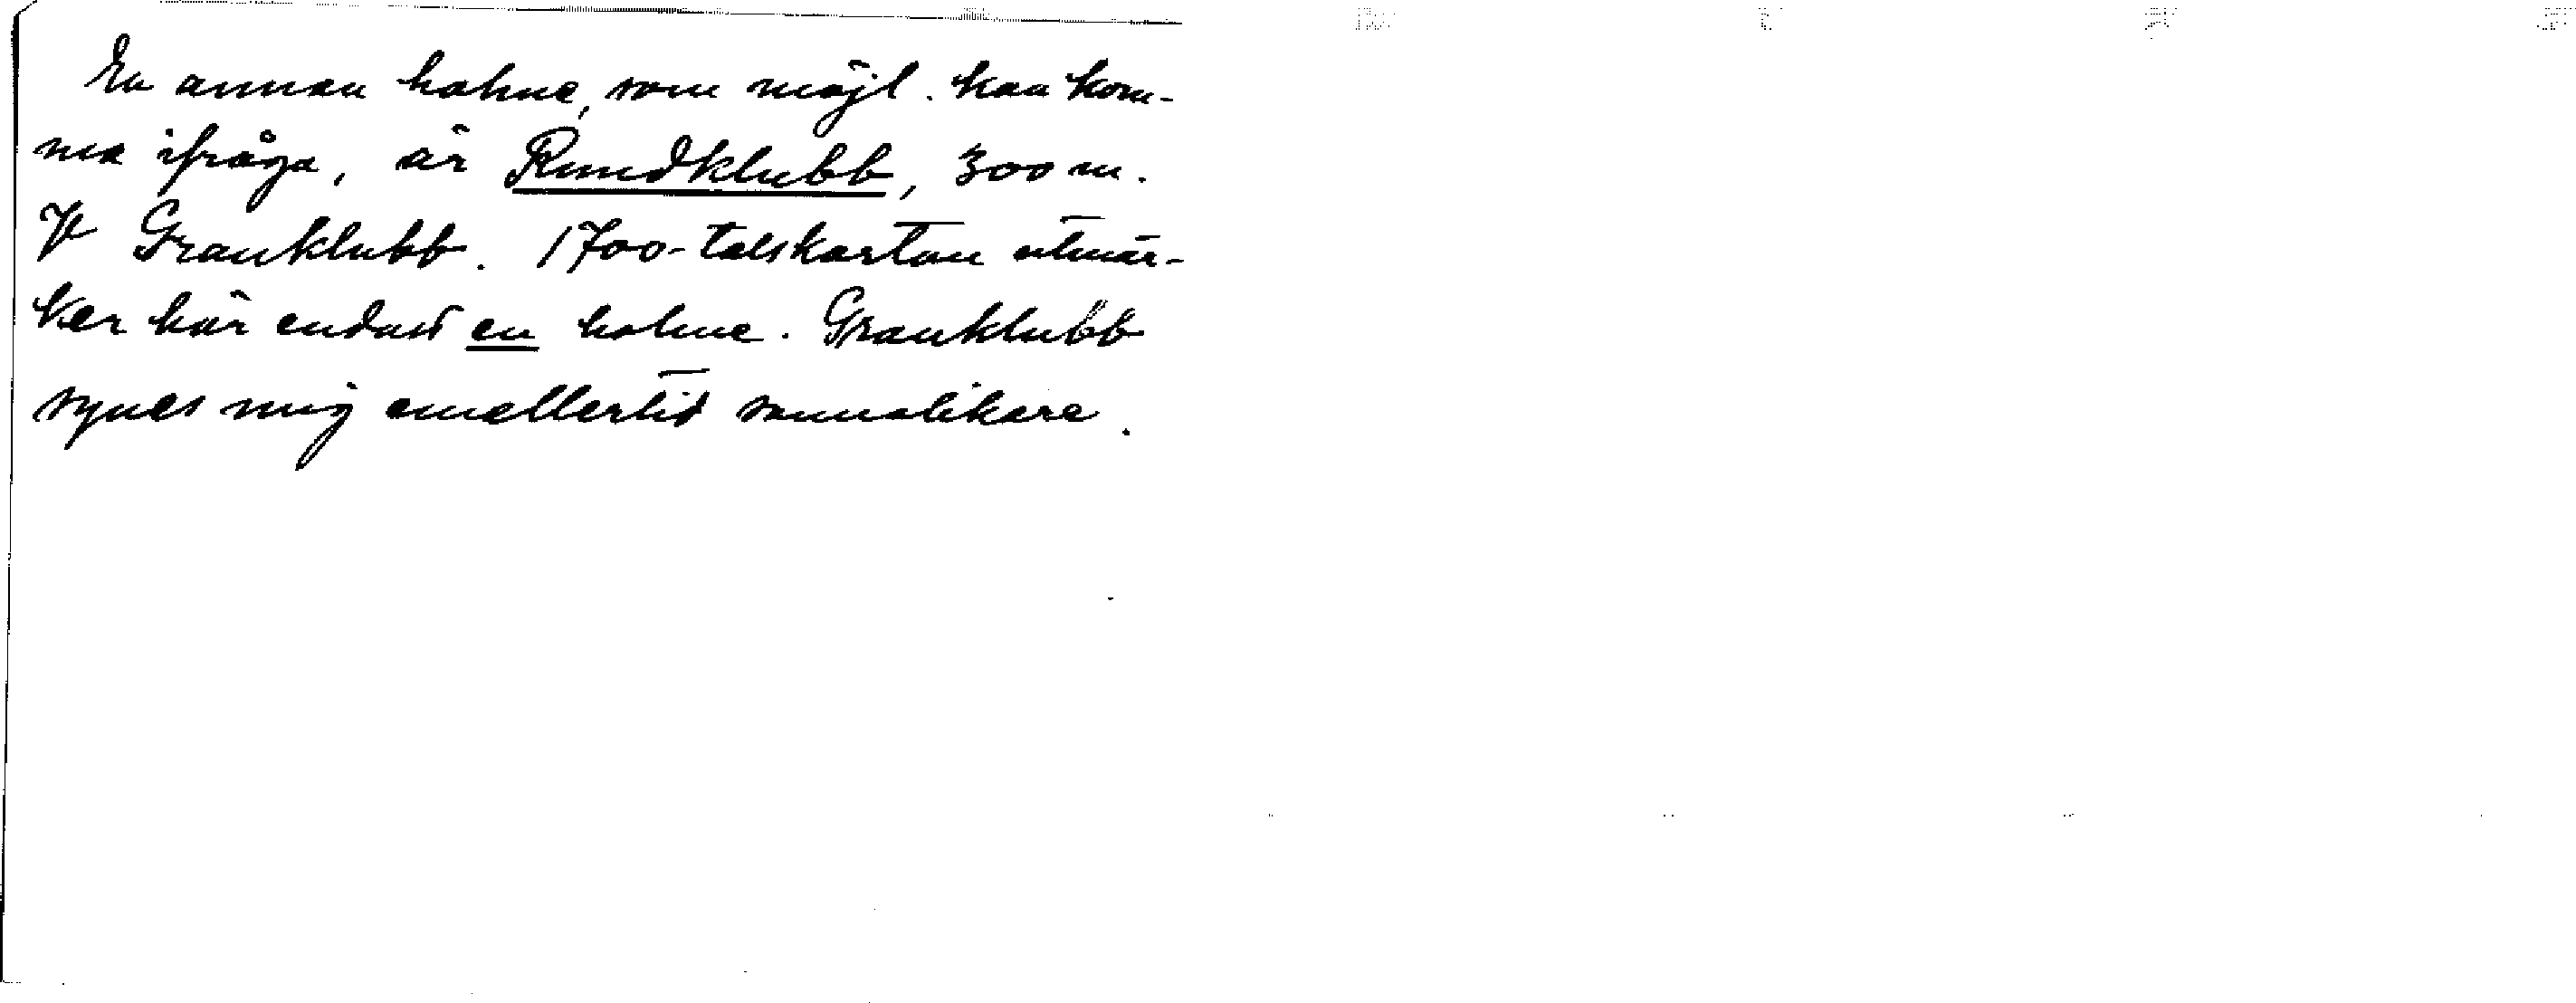 En annan holme, som möjl. kan kom-
ma ifråga, är Rundklubb, 300 m.
V Granklubb. 1700-talskartan utmär-
ker här endast en holme. Granklubb
synes mig emellertid sannolikare.